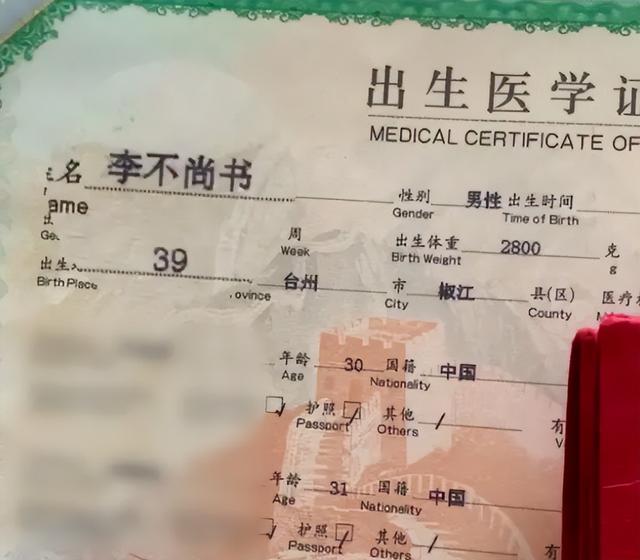 出生医学证
MEDICAL CERTIFICATE OF
名 李不尚书 性别 男性 出生时间
ame Gender Time of Birth
周 出生体重 2800 克
Ge. Week Birth Weight g
出生 39 台州 市 椒江 县(区) 医疗
Birth Place ovince City County
年龄 30 国籍 中国
Age Nationality
护照 其他 / 有
Passport Others V
年龄 31 国籍 中国
Age Nationality
护照 其他 / 有
Passport Others